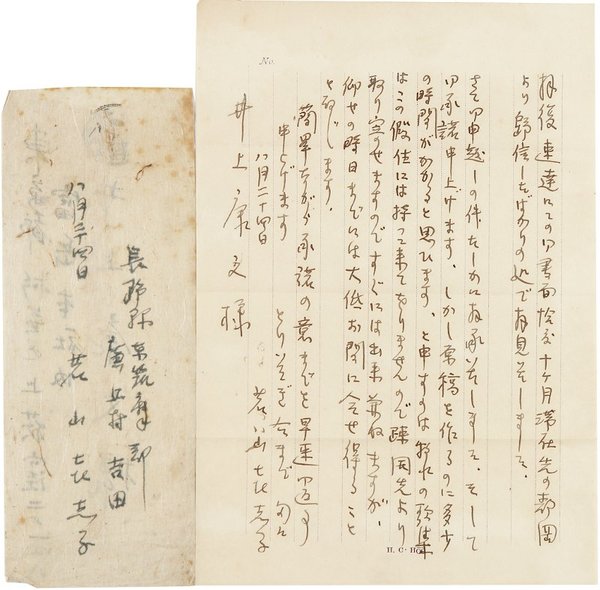 No.
拝復 速達にての御書面恰度十ヶ月滞在先の静岡
より帰信したばかりの処で拝見いたしました。
さて御申越しの件たしかに拝承いたしました、そして
御承諾申上げます。しかし原稿を作るのに多少
の時間がかかると思ひます、と申すは私の歌集
はこの假住には持つて来てをりませんので疎開先より
取り寄せますのですぐには出来兼ねますが、
仰せの時日までには大低お間に合せ得ること
と存じます。
簡単ながら承諾の意まで早速御返事
申上げます
とりいそぎ 匆々
八月二十四日
若山喜志子
井上康文様
H. C. Ho
長野縣東筑摩郡
廣丘村吉田
若山喜志子
八月二十四日